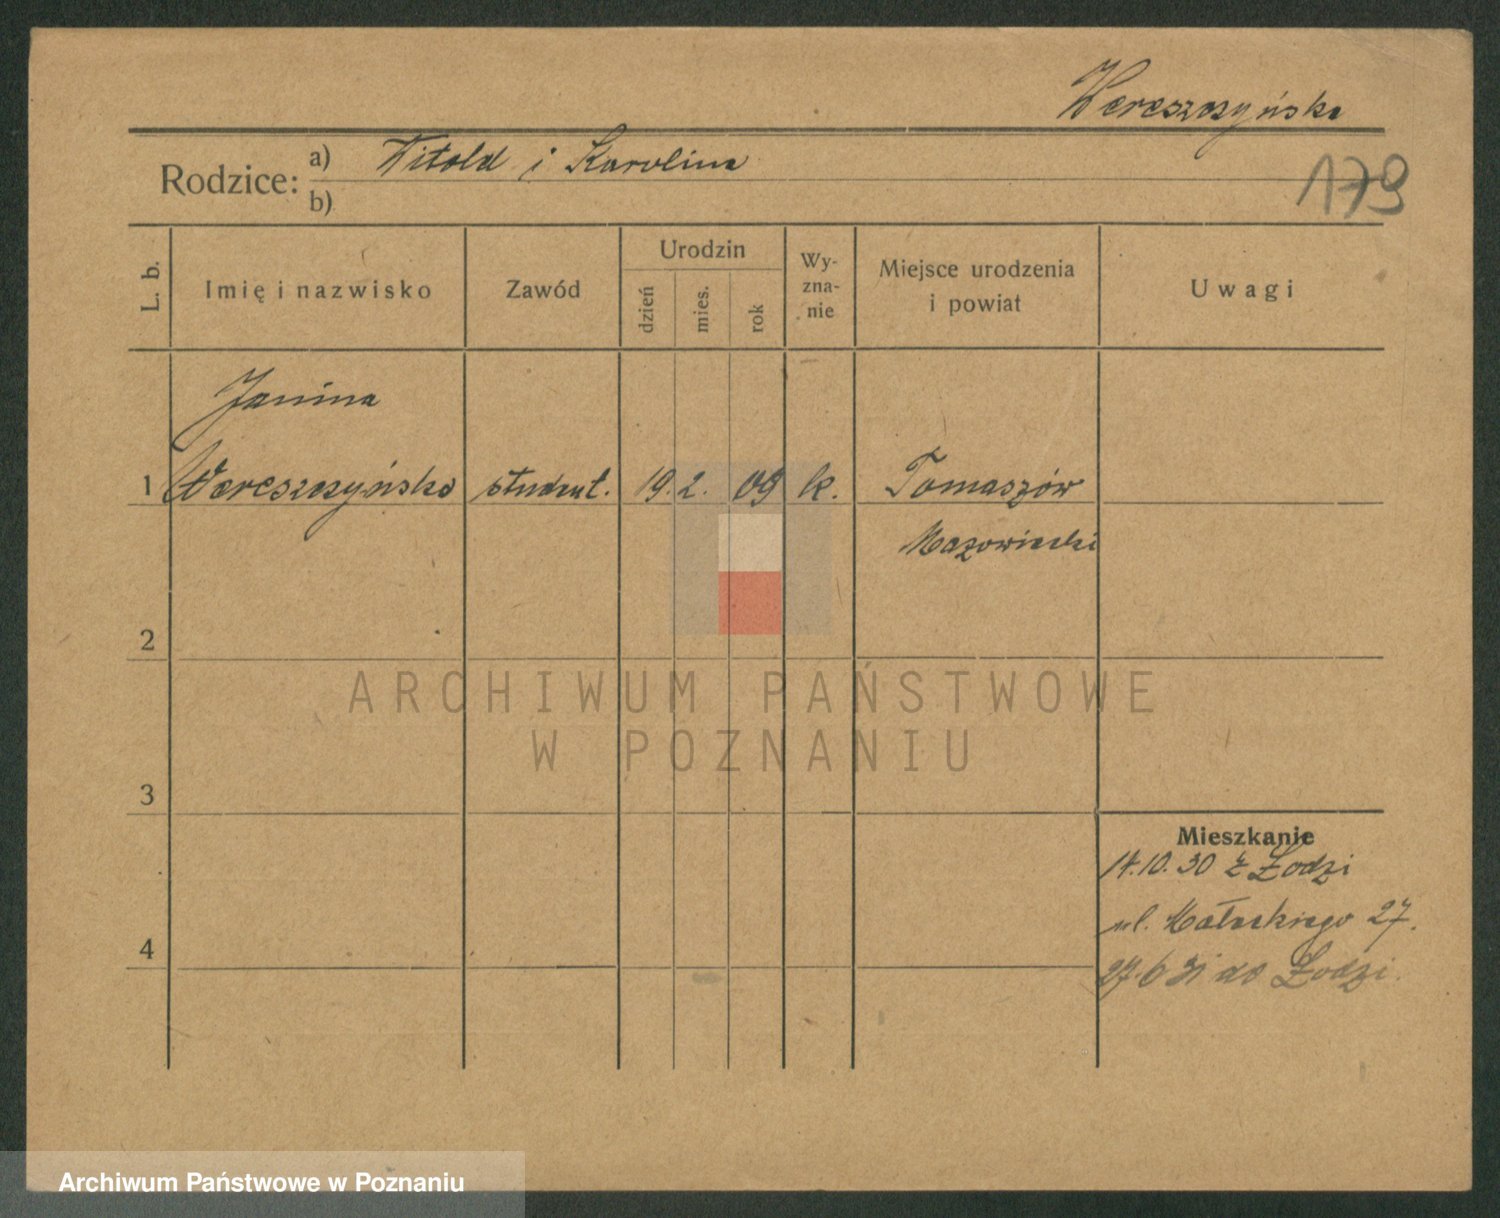 Wereszczyńska
Rodzice: a) Witold i Karolina
179
b)
L. b.
Imię i nazwisko
Zawód
Urodzin
dzień
mies.
rok
Wy-
zna-
nie
Miejsce urodzenia
i powiat
Uwagi
Janina
1 Wereszczyńska student. 19. 2. 09 k. Tomaszów
Mazowiecki
2
3
4
Mieszkanie
14.10.30 z Łodzi
ul. Małeckiego 27.
27.6 31 do Łodzi.
ARCHIWUM PAŃSTWOWE
W POZNANIU
Archiwum Państwowe w Poznaniu